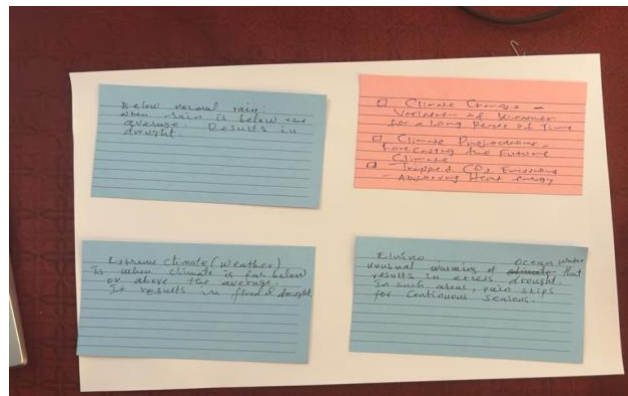 Below normal rain.
when rain is below the
average. Results in
drought.
Climate Change -
Variation of Weather
for a Long Period of Time
Climate Projections -
Forecasting the Future
Climate
Trapped CO2 Emissions
- Absorbing Heat energy
Extreme Climate (Weather)
Is when climate is far below
or above the average.
It results in flood & drought.
ocean water
unusual warming of that
results in excess drought.
In such areas, rain skips
for continuous seasons.